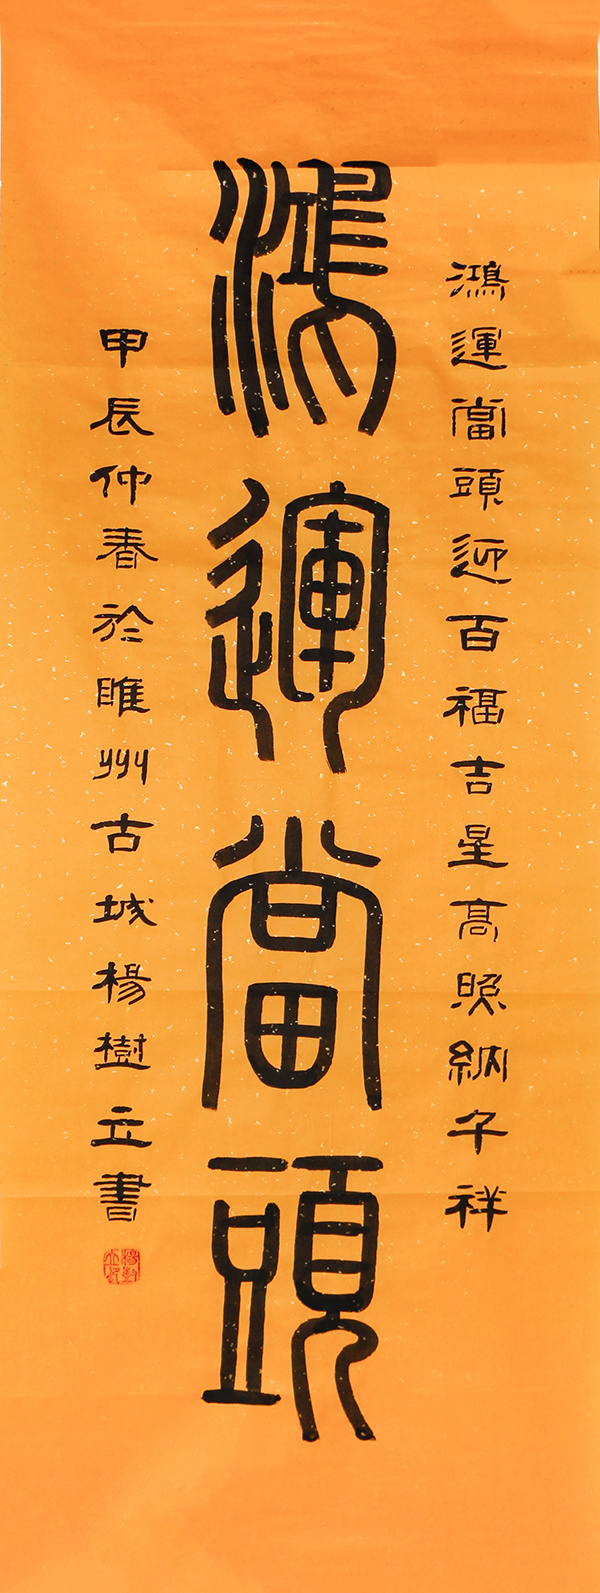 鴻運當頭迎百福吉星高照納千祥
鴻運當頭
甲辰仲春於睢州古城楊樹立書